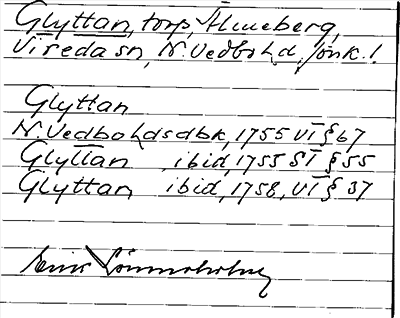 Glyttan, torp, Älmeberg,
Vireda sn, N. Vedbo hd, Jönk. l.
Glyttan
N. Vedbo hds dbk, 1755 VT § 67
Glyttan ibid, 1755 ST § 55
Glyttan ibid, 1758, VT § 37